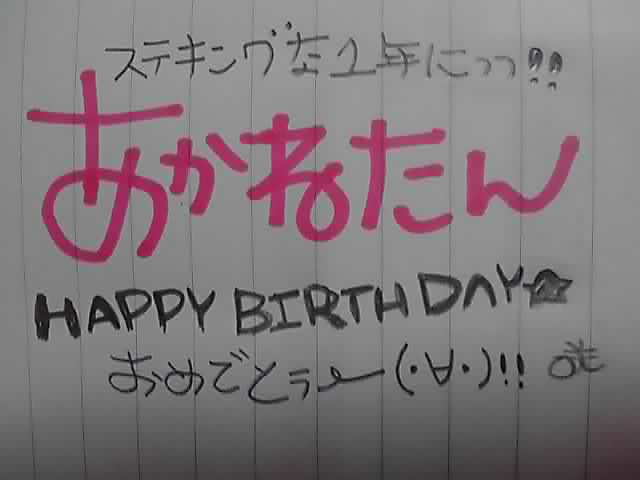 ステキングな1年にっっ!!
あかねたん
HAPPY BIRTHDAY★
おめでとうー(・∀・)!!